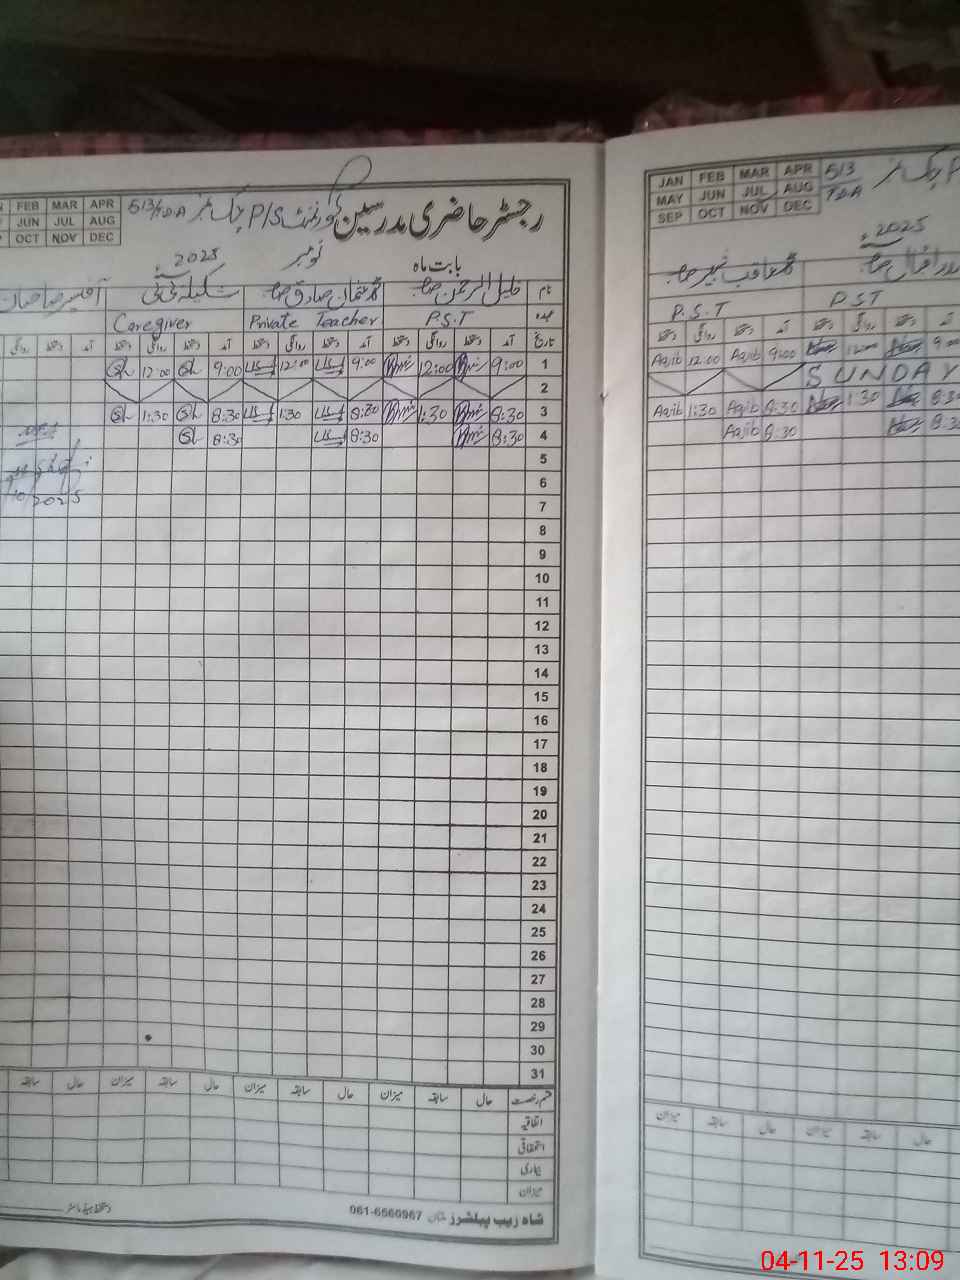 FEB MAR APR
JUN JUL AUG
OCT NOV DEC
رجسٹر حاضری مدرسین گورنمنٹ P/S چک نمبر 513/TDA
بابت ماہ نومبر 2025ء
نام خلیل الرحمن صاحب محمد صادق صاحب شکیلہ بی بی
عہدہ P.S.T Private Teacher Caregiver
تاریخ آمد دستخط روانگی دستخط آمد دستخط روانگی دستخط آمد دستخط روانگی دستخط
1 9:00 12:00 9:00 12:00 9:00 12:00
2
3 8:30 1:30 8:30 1:30 8:30 1:30
4 8:30 8:30 8:30
5
6
7
8
9
10
11
12
13
14
15
16
17
18
19
20
21
22
23
24
25
26
27
28
29
30
31
10/2025
قسم رخصت حال سابقہ میزان حال سابقہ میزان حال سابقہ میزان حال سابقہ
اتفاقیہ
استحقاقی
بیماری
میزان
شاہ زیب پبلشرز ملتان 061-6560967
دستخط ہیڈ ماسٹر
JAN FEB MAR APR
MAY JUN JUL AUG
SEP OCT NOV DEC
چک نمبر 513
TDA
2025ء
محمد عاقب نمیر صاحب
P.S.T PST
آمد دستخط روانگی دستخط آمد دستخط روانگی دستخط
9:00 12:00 9:00 Aajib 12:00 Aajib
SUNDAY
8:30 1:30 8:30 Aajib 1:30 Aajib
8:30 8:30 Aajib
حال سابقہ میزان حال سابقہ میزان
04-11-25 13:09